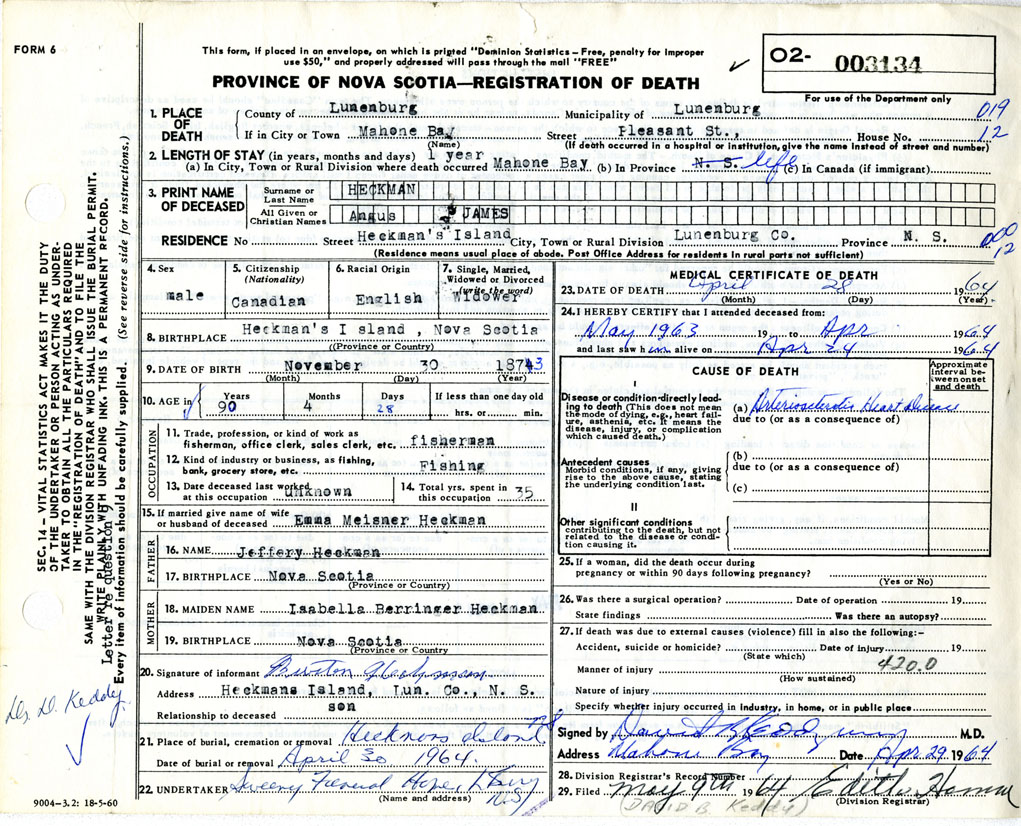 FORM 6
This form, if placed in an envelope, on which is printed "Dominion Statistics – Free, penalty for improper
use $50," and properly addressed will pass through the mail "FREE"
PROVINCE OF NOVA SCOTIA—REGISTRATION OF DEATH
02- 003134
For use of the Department only
1. PLACE OF DEATH
County of Lunenburg Municipality of Lunenburg 019
If in City or Town Mahone Bay Street Pleasant St., House No. 12
(Name) (If death occurred in a hospital or institution, give the name instead of street and number)
2. LENGTH OF STAY (in years, months and days) 1 year
(a) In City, Town or Rural Division where death occurred Mahone Bay (b) In Province N. S. life (c) In Canada (if immigrant)
3. PRINT NAME OF DECEASED
Surname or Last Name HECKMAN
All Given or Christian Names Angus JAMES
RESIDENCE No Street Heckman's Island City, Town or Rural Division Lunenburg Co. Province N. S. 000
12
(Residence means usual place of abode. Post Office Address for residents in rural parts not sufficient)
4. Sex
male
5. Citizenship
(Nationality)
Canadian
6. Racial Origin
English
7. Single, Married,
Widowed or Divorced
(write the word)
Widower
8. BIRTHPLACE Heckman's I sland , Nova Scotia
(Province or Country)
9. DATE OF BIRTH November 30 1873
(Month) (Day) (Year)
10. AGE in
Years Months Days If less than one day old
90 4 28 hrs. or min.
OCCUPATION
11. Trade, profession, or kind of work as
fisherman, office clerk, sales clerk, etc. fisherman
12. Kind of industry or business, as fishing,
bank, grocery store, etc. Fishing
13. Date deceased last worked
at this occupation unknown
14. Total yrs. spent in
this occupation 35
15. If married give name of wife
or husband of deceased Emma Meisner Heckman
FATHER
16. NAME Jeffery Heckman
17. BIRTHPLACE Nova Scotia
(Province or Country)
MOTHER
18. MAIDEN NAME Isabella Berringer Heckman
19. BIRTHPLACE Nova Scotia
(Province or Country)
20. Signature of informant Burton Heckman
Address Heckmans Island, Lun. Co., N. S.
Relationship to deceased son
21. Place of burial, cremation or removal Heckmans Island NS
Date of burial or removal April 30 1964.
22. UNDERTAKER Sweeny Funeral Home, L'burg
N.S.
(Name and address)
9004–3.2: 18-5-60
MEDICAL CERTIFICATE OF DEATH
23. DATE OF DEATH April 28 1964
(Month) (Day) (Year)
24. I HEREBY CERTIFY that I attended deceased from:
May 1963 19 to Apr 1964
and last saw him alive on Apr 24 1964
CAUSE OF DEATH
Approximate
interval be-
tween onset
and death
I
Disease or condition directly lead-
ing to death (This does not mean
the mode of dying, e.g., heart fail-
ure, asthenia, etc. It means the
disease, injury, or complication
which caused death.)
(a) Arteriosclerotic Heart Disease
due to (or as a consequence of)
Antecedent causes
Morbid conditions, if any, giving
rise to the above cause, stating
the underlying condition last.
(b)
due to (or as a consequence of)
(c)
II
Other significant conditions
contributing to the death, but not
related to the disease or condi-
tion causing it.
25. If a woman, did the death occur during
pregnancy or within 90 days following pregnancy?
(Yes or No)
26. Was there a surgical operation? Date of operation 19
State findings Was there an autopsy?
27. If death was due to external causes (violence) fill in also the following:–
Accident, suicide or homicide? Date of injury 19
(State which)
Manner of injury 420.0
(How sustained)
Nature of injury
Specify whether injury occurred in industry, in home, or in public place
Signed by David B Keddy M.D.
Address Mahone Bay Date Apr 29 1964
28. Division Registrar's Record Number
29. Filed May 9th 1964
(Division Registrar)
(DAVID B. Keddy)
SEC. 14 – VITAL STATISTICS ACT MAKES IT THE DUTY
OF THE UNDERTAKER OR PERSON ACTING AS UNDER-
TAKER TO OBTAIN ALL THE PARTICULARS REQUIRED
IN THE "REGISTRATION OF DEATH" AND TO FILE THE
SAME WITH THE DIVISION REGISTRAR WHO SHALL ISSUE THE BURIAL PERMIT.
WRITE PLAINLY WITH UNFADING INK. THIS IS A PERMANENT RECORD.
Letter re question 9
Every item of information should be carefully supplied. (See reverse side for instructions.)
Dr. D. Keddy